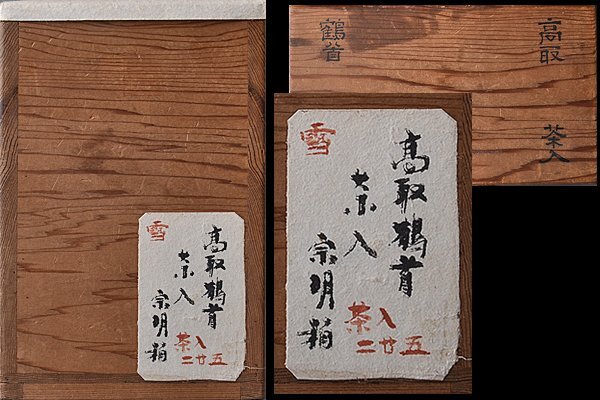 雪
高取鶴首
茶入
宗明箱
茶入
二廿五
雪
高取鶴首
茶入
宗明箱
茶入
二廿五
高取
鶴首
茶入